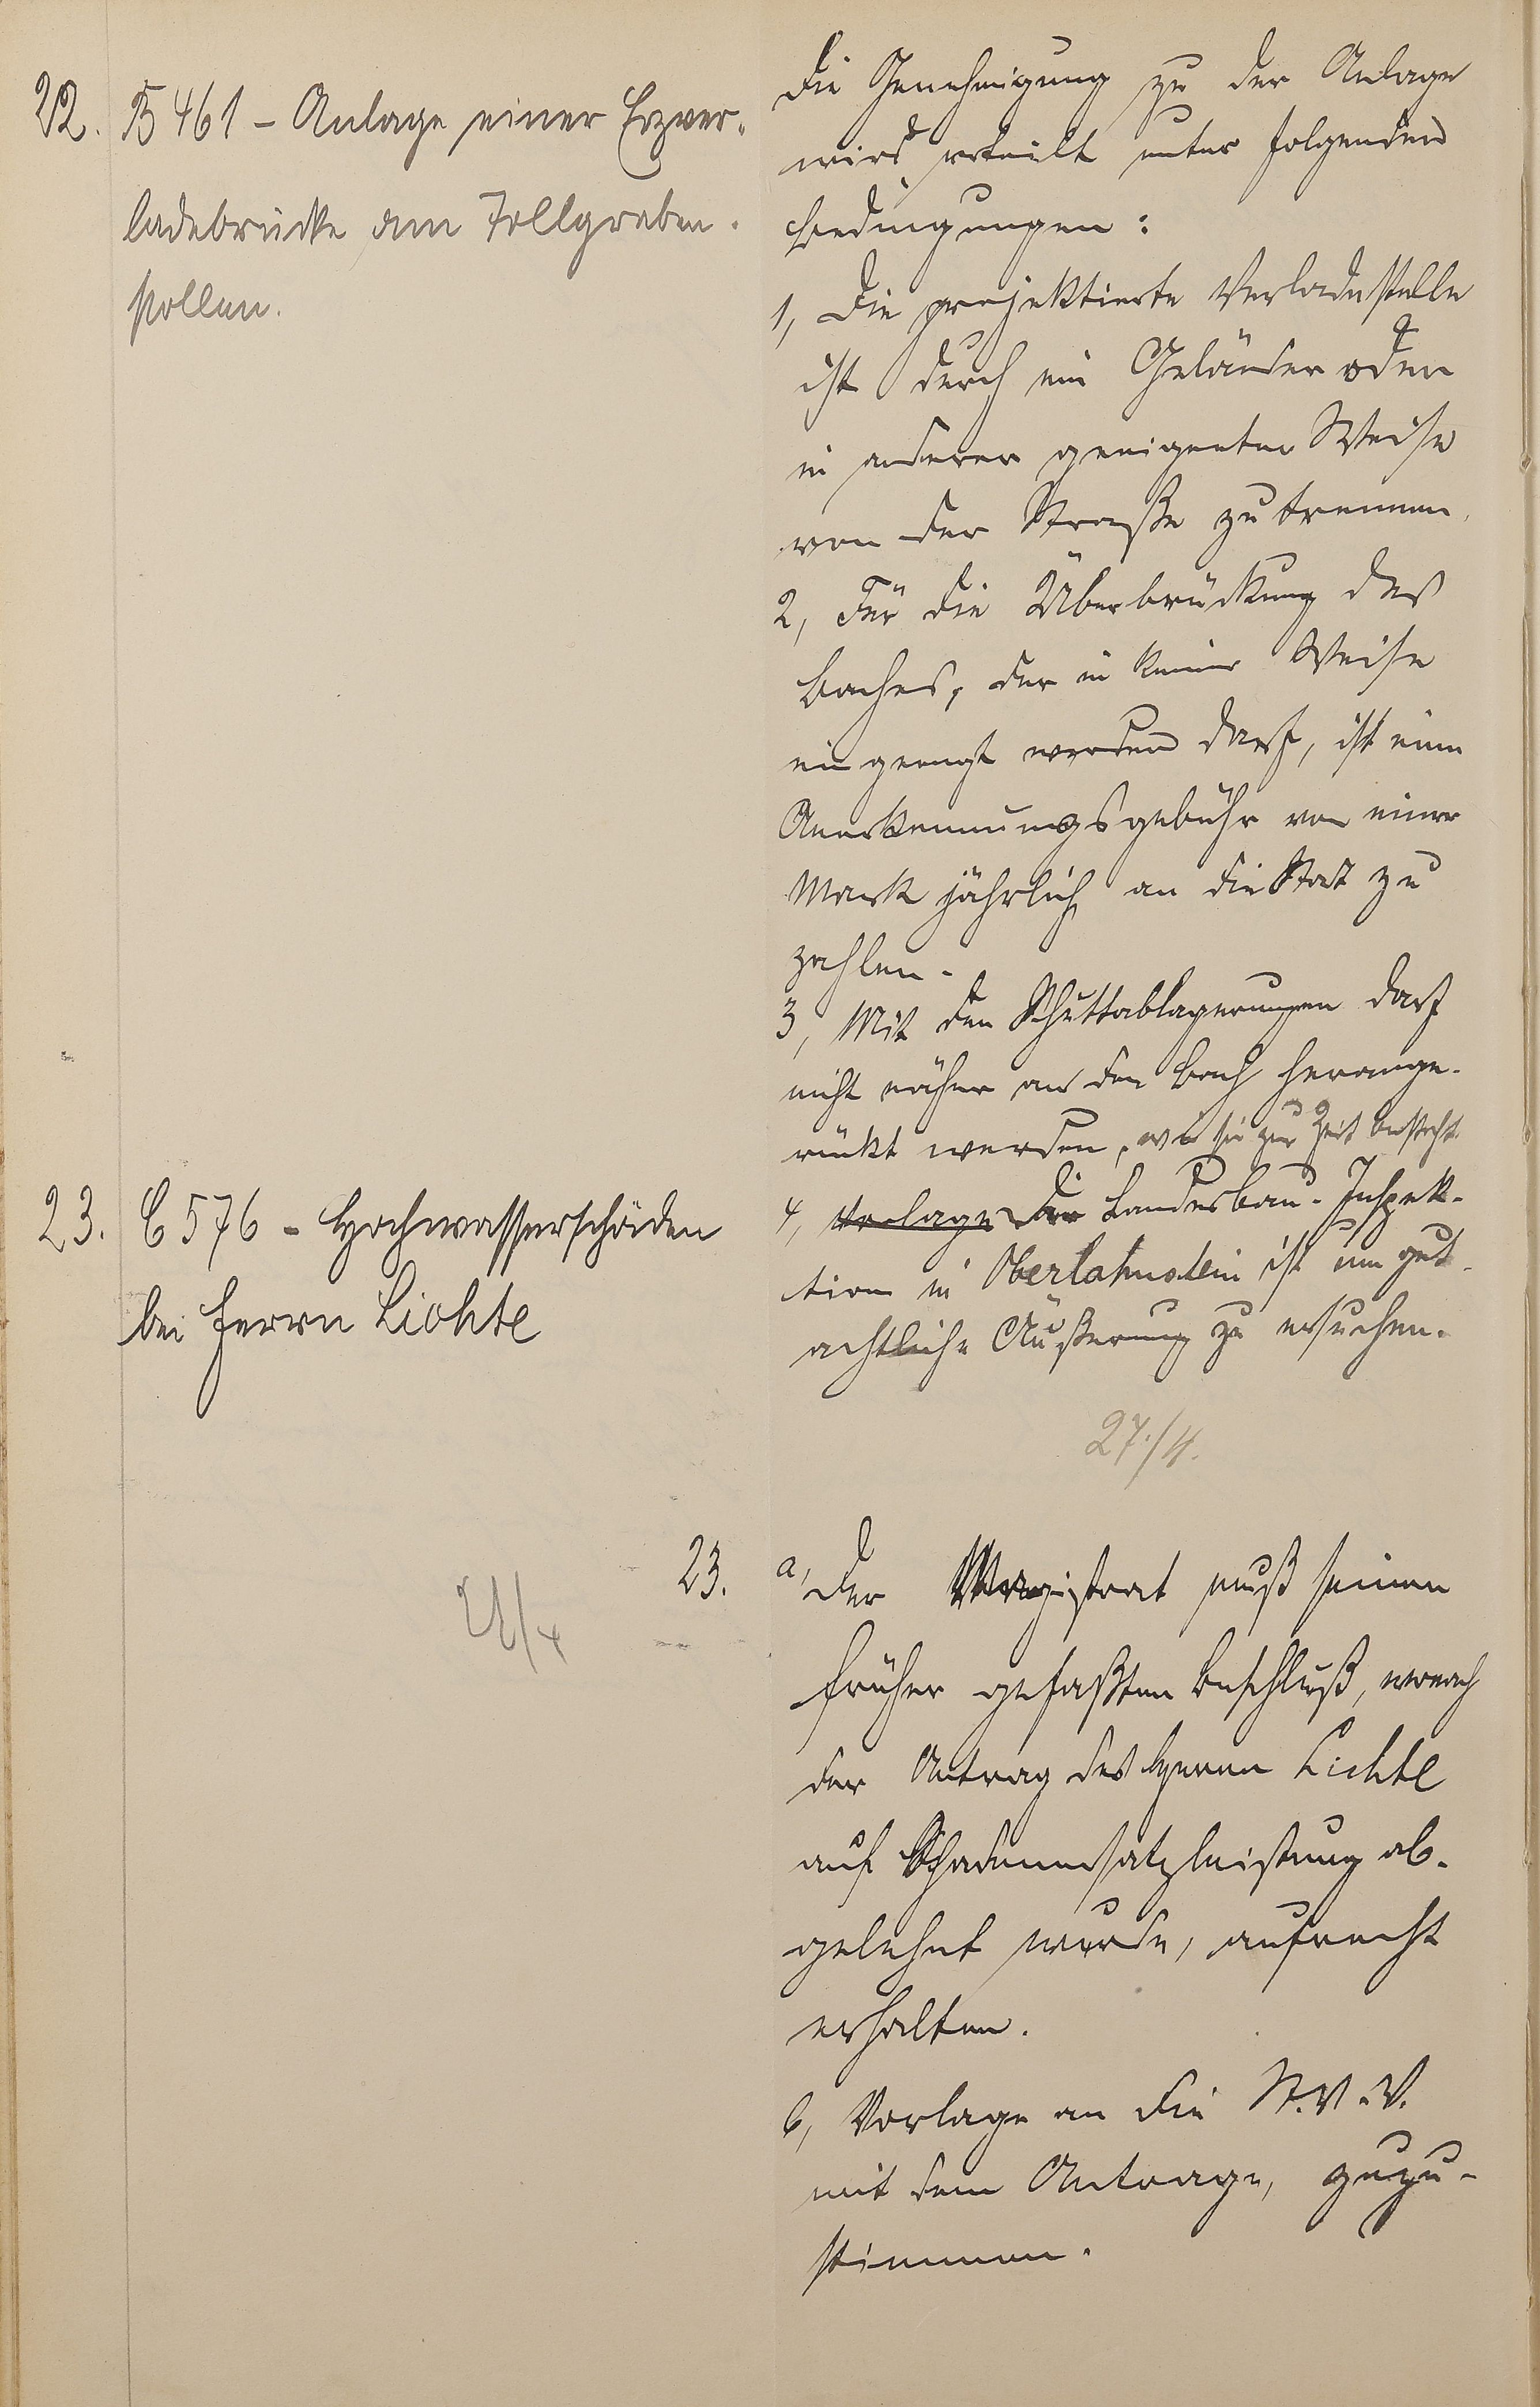 22. B 461 - Anlage einer Erzver-
ladebrücke am Zollgraben.
stollen.
die Genehmigung zu der Anlage
wird erteilt unter folgenden
Bedingungen:
1, Die projektierte Verladestelle
ist durch ein Geländer oder
in anderer geeigneter Weise
von der Straße zu trennen.
2, Für die Überbrückung des
Baches, der in keiner Weise
eingeengt werden darf, ist eine
Anerkennungsgebühr von einer
Mark jährlich an die Stadt zu
zahlen.
3, Mit den Schuttablagerungen darf
nicht näher an den Bach herange-
rückt werden, wie sie zur Zeit besteht.
4, Vorlage Die Landesbau-Inspek-
tion in Oberlahnstein ist um gut-
achtliche Äußerung zu ersuchen.
27./4.
23. C 576 - Hochwasserschäden
bei Herrn Lichte
23. a, Der Magistrat muß seinen
früher gefaßten Beschluß, wonach
der Antrag des Herrn Lichte
auf Schadenersatzleistung ab-
gelehnt wurde, aufrecht
erhalten.
b, Vorlage an die St.V.V.
mit dem Antrage, zuzu-
stimmen.